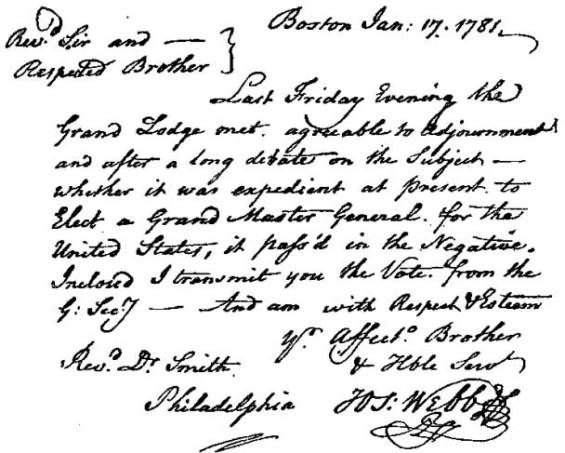 Boston Jan: 17. 1781.
Rev.d Sir and —
Respected Brother
Last Friday Evening the
Grand Lodge met. agreable to Adjournment
and after a long debate on the Subject —
whether it was expedient at present to
Elect a Grand Master General. for the
United States, it pass'd in the Negative.
Inclosed I transmit you the Vote. from the
G: Sec:y — And am with Respect & Esteem
Yr. Affect.o Brother
Rev.d Dr. Smith. & Hble Servt
Philadelphia Jos: Webb